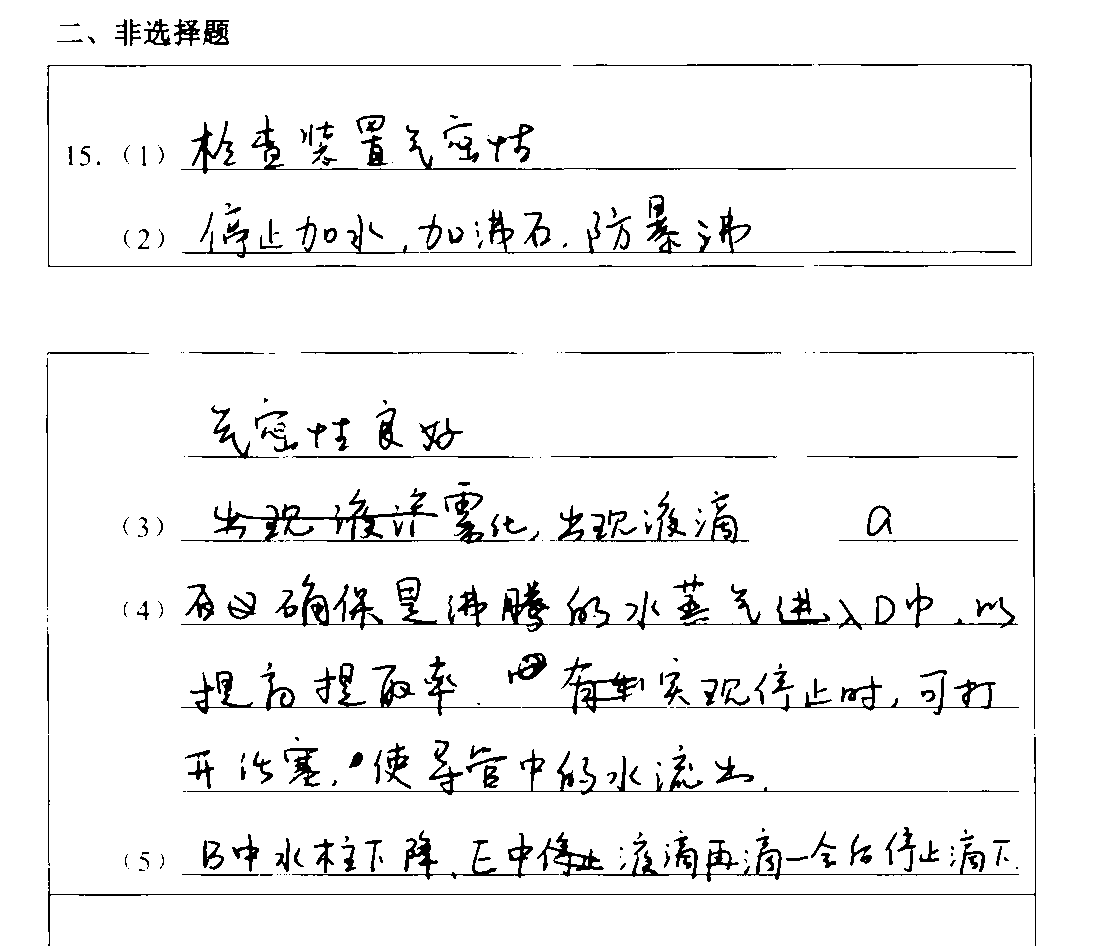 二、非选择题
15.（1）检查装置气密性
（2）停止加水，加沸石，防暴沸
气密性良好
（3）出现液 雾化，出现液滴 a
（4）确保是沸腾的水蒸气进入D中，以
提高提取率. 有 实现停止时，可打
开活塞，使导管中的水流出.
（5）B中水柱下降，E中停止液滴再滴一会后停止滴下.